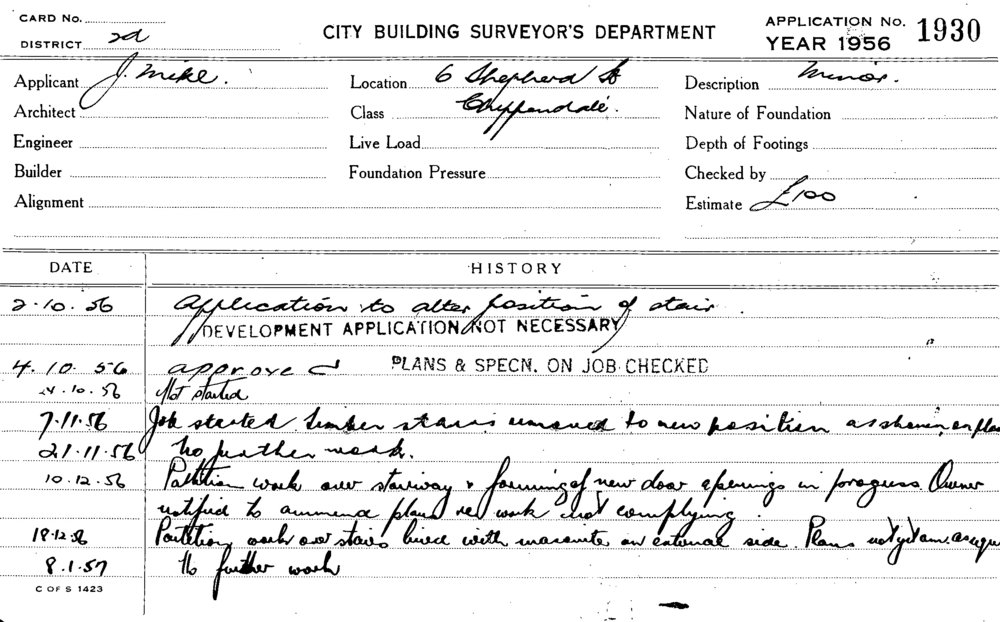 CARD No.
DISTRICT 2d
CITY BUILDING SURVEYOR'S DEPARTMENT
APPLICATION No. 1930
YEAR 1956
Applicant J. Mekl. Location 6 Shepherd St Description Minor.
Architect Class Chippendale. Nature of Foundation
Engineer Live Load Depth of Footings
Builder Foundation Pressure Checked by
Alignment Estimate £100
DATE HISTORY
2.10.56 Application to alter position of stair.
DEVELOPMENT APPLICATION NOT NECESSARY
4.10.56 approved PLANS & SPECN. ON JOB CHECKED
24.10.56 Not started
7.11.56 Job started timber stairs removed to new position as shewn on plan
21.11.56 No further work.
10.12.56 Partition work over stairway & forming of new door openings in progress Owner
notified to ammend plans re work not complying
19.12.56 Partition work over stairs lined with masonite on external side. Plans not yet am.
8.1.57 No further work
C OF S 1423